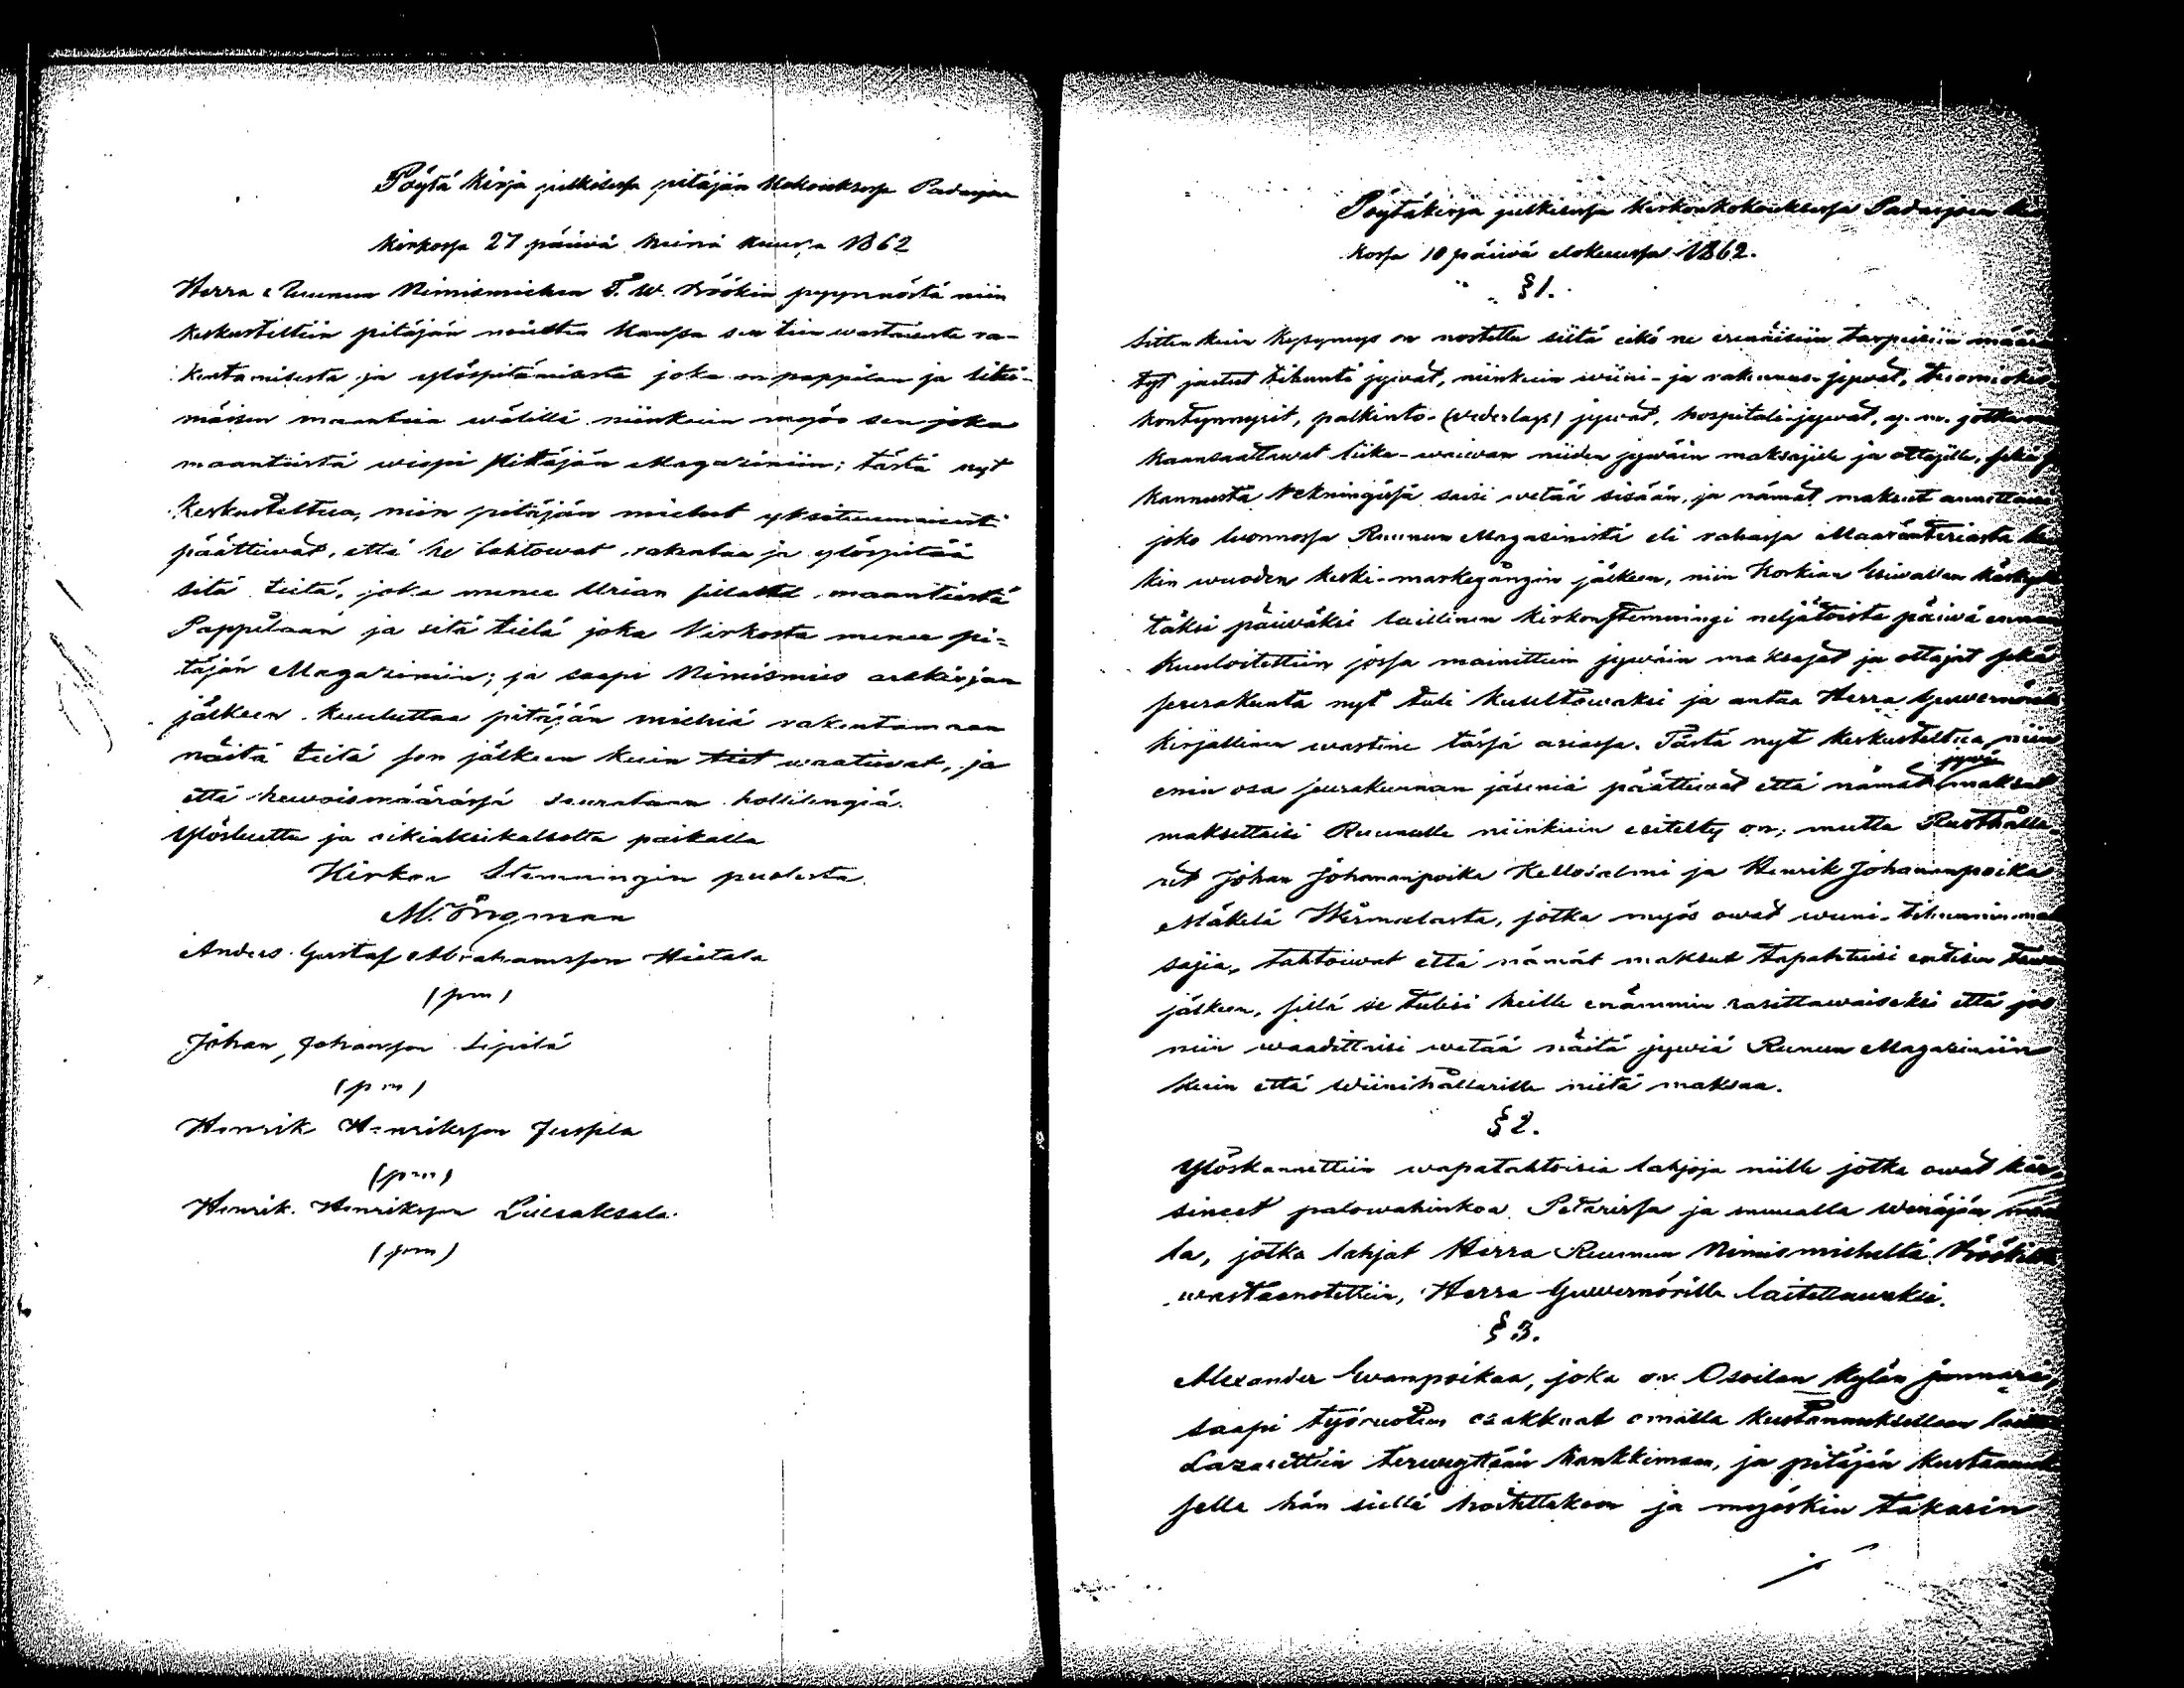 Pöytä kirja julkisessa pitäjän kokouksessa Padasjoen
kirkossa 27 päivä heinä kuussa 1862
Herra Ruunun Nimismiehen F. W. Böökin pyynnöstä niin
keskusteltiin pitäjän miesten kanssa sen tien wastaisesta ra-
kentamisesta ja ylöspitämisestä joka on pappilan ja
maantien wälillä niinkuin myös sen joka
maantiestä wiepi Pittäjän Magasiniin; tästä nyt
keskusteltua, niin pitäjän miehet yksituumaisesti
päättiwät, että he tahtowat rakentaa ja ylöspitää
sitä tietä, joka menee Urian sillalta maantiestä
Pappilaan ja sitä tietä joka Kirkosta menee pi-
täjän Magasiniin; ja saapi Nimismies
jälkeen kuuluttaa pitäjän miehiä rakentamaan
näitä teitä sen jälkeen kuin tiet waatiwat, ja
että hewoismäärässä seurataan hollilengiä.
Ylösluettu ja oikiaksikatsottu paikalla
Kirkon Stemningin puolesta.
M. Öngman
Anders Gustaf Abrahamsson Hietala
(pm)
Johan Johansson Sipilä
(pm)
Henrik Henriksson Juspla
(pm)
Henrik Henriksson Liesaksala
(pm)
Pöytäkirja julkisessa kirkonkokouksessa Padasjoen
kossa 10 päiwä elokuussa 1862.
§ 1.
Sitten kuin kysymys on nostettu siitä eikö ne erinäisiin tarpeisiin
tyt jaetut tihunti jywät, niinkuin wiini- ja rakennus-jywät,
kontynnyrit, palkinto- (wederlags) jywät, hospitali-jywät, y. m. jotka
kaansaattawat liika-waiwan niiden jywäin maksajille ja ottajille, sekä
kannusta Rekningissä saisi wetää sisään, ja nämät maksut annettaisi
joko luonnossa Ruunun Magasinistä eli rahassa Maaränteriasta
kin wuoden keski-markegångin jälkeen, niin Korkian Esiwallan
täksi päiwäksi laillinen kirkonstemningi neljätoista päiwä ennen
kuuloitettiin jossa mainittiin jywäin maksajat ja ottajat sekä
seurakunta nyt tuli kuultawaksi ja antaa Herra Guwernöri
kirjallinen wastine tässä asiassa. Tästä nyt keskusteltua, niin
enin osa seurakunnan jäseniä päättiwät että nämät jywän maksut
maksettaisi Ruunulle niinkuin esitelty on; mutta Rusthålla-
rit Johan Johananpoika Kellosalmi ja Henrik Johananpoika
Mäkelä Wirmailasta, jotka myös owat wiini-tihunnin
sajia, tahtoiwat että nämät maksut tapahtuisi entisen
jälkeen, sillä se tulisi heille enämmin rasittawaiseksi että jos
niin waadittaisi wetää näitä jywiä Ruunun Magasiniin
kuin että wiinihållarille niitä maksaa.
§ 2.
Ylöskannettiin wapatahtoisia lahjoja niille jotka owat kär-
sineet palowahinkoa Petarissa ja muualla wenäjän
la, jotka lahjat Herra Ruunun Nimismieheltä Böökiltä
wastaanotettiin, Herra Guwernörille laitettawaksi.
§ 3.
Alexander Ewanpoikaa, joka on Osoilan kylän
saapi työruotin osakkaat omalla kustannuksellaan
Lazarettiin terweyttään hankkimaan, ja pitäjän
sella hän siellä hoitettakoon ja myöskin takasin